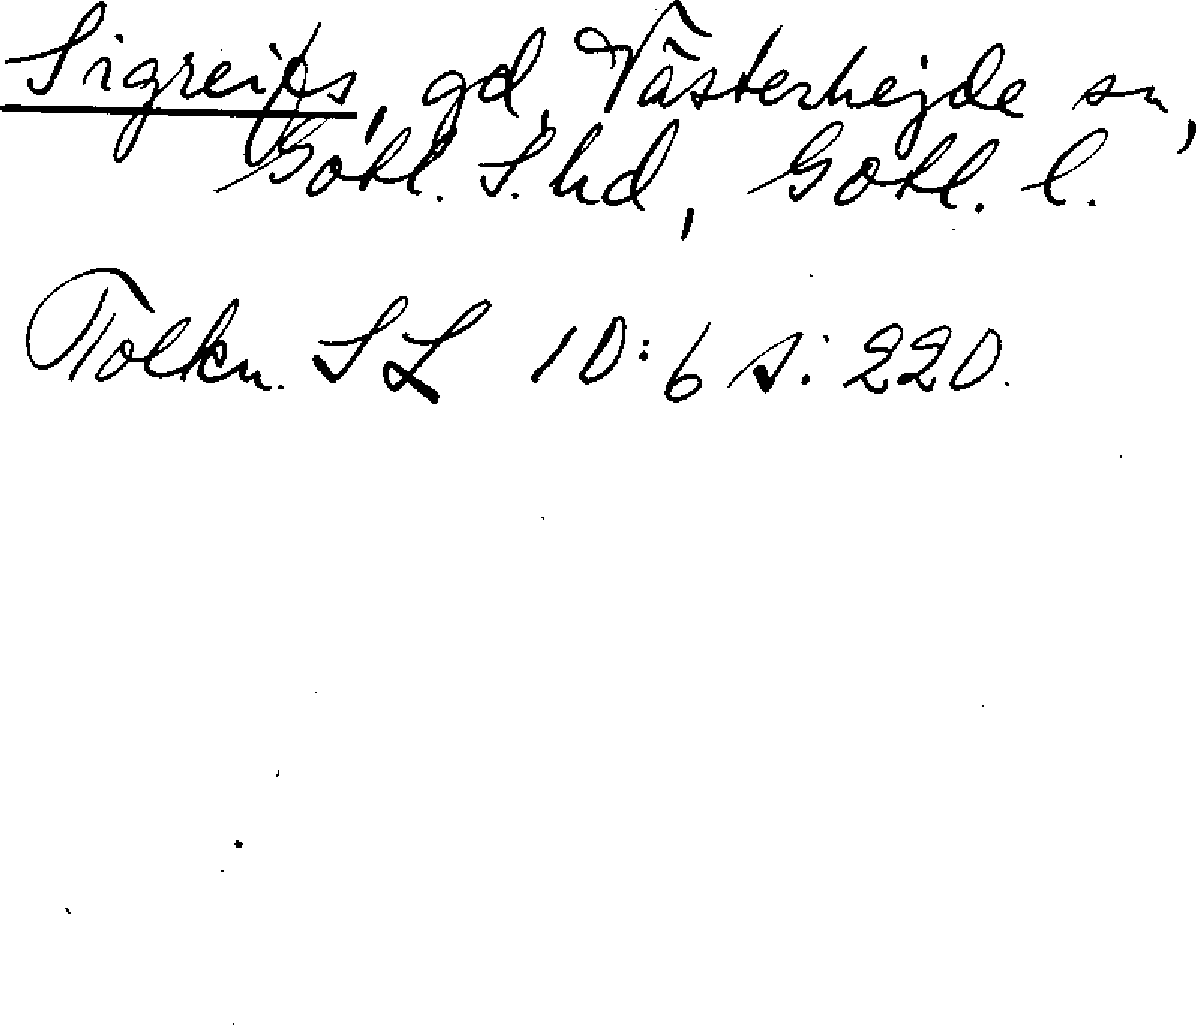 Sigreifs, gd, Västerhejde sn,
Gotl. S. hd, Gotl. l.
Tolkn. SL 10:6 s. 220.